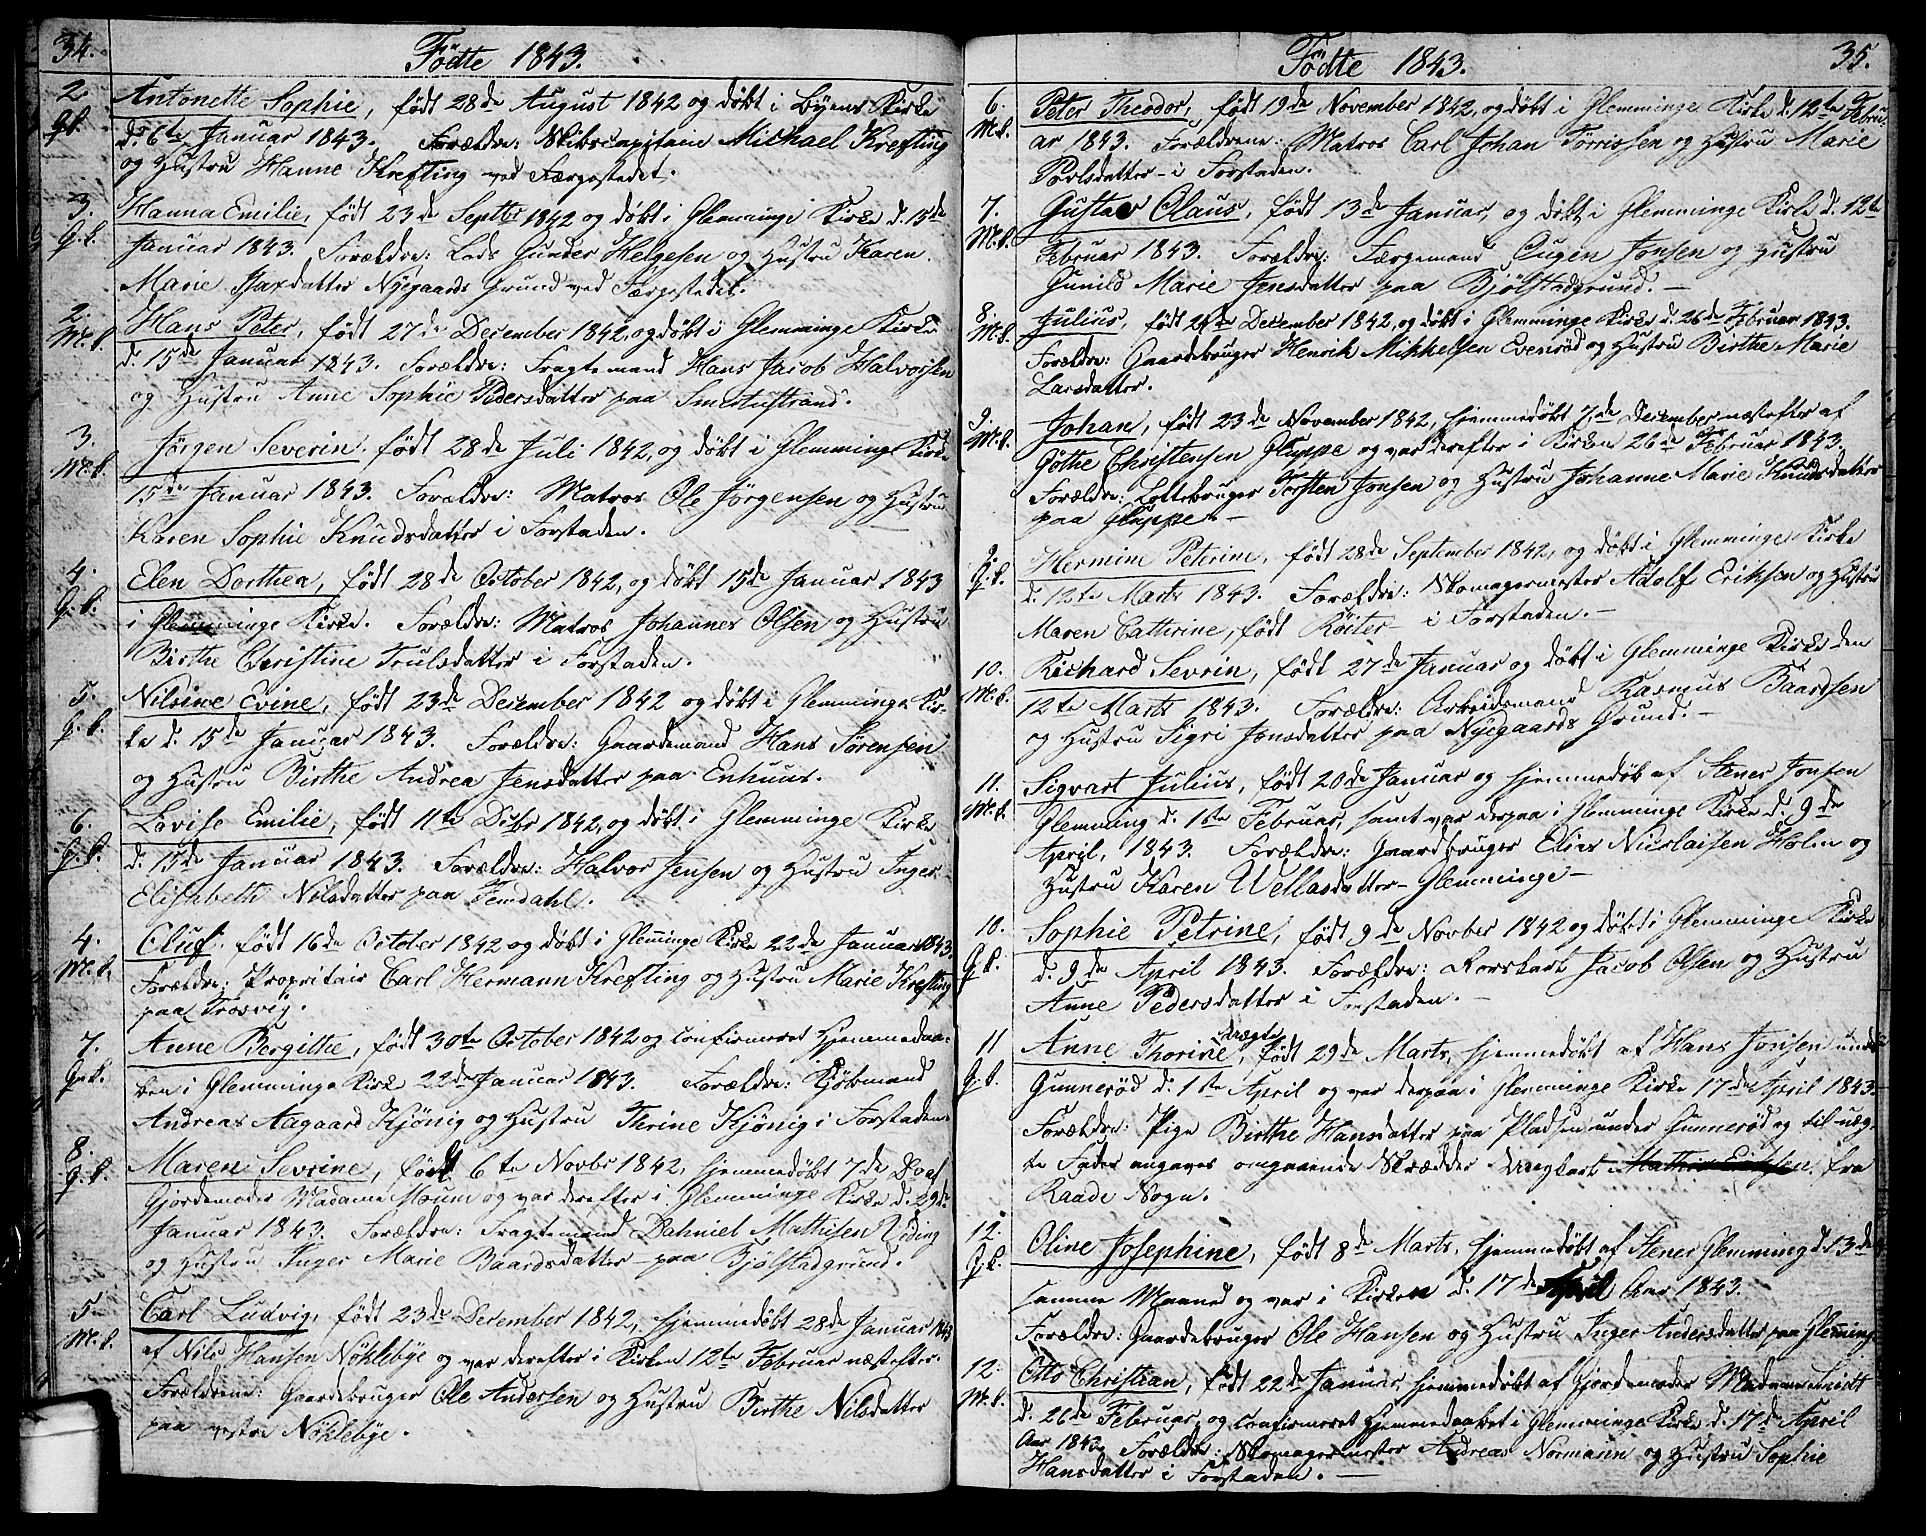 34.
Födte 1843.
2. Antonette Sophie, födt 28de August 1842 og döbt i Byens Kirke
P.B. d. 6te Januar 1843. Forældre: Skibscapitain Michael Krefting
og Hustru Hanne Krefting ved Færgestedet.
3. Hanna Emilie, födt 23de Septbr 1842 og döbt i Glemminge Kirke d. 15de
P.B. Januar 1843. Forældre: Lods Gunder Helgesen og Hustru Karen
Marie Isaxdatter Nyegaards Grund ved Færgestedet.
2. Hans Peter, födt 27de December 1842, og döbt i Glemminge Kirke
M.B. d. 15de Januar 1843. Forældre: Fragtemand Hans Jacob Halvorsen
og Hustru Anne Sophie Pedersdatter paa Smertustrand.
3. Jörgen Severin, födt 28de Juli 1842, og döbt i Glemminge Kirke
M.B. 15de Januar 1843. Forældre: Matros Ole Jörgensen og Hustru
Karen Sophie Knudsdatter i Forstaden.
4. Elen Dorthea, födt 28de October 1842, og döbt 15de Januar 1843
P.B. i Glemminge Kirke. Forældre: Matros Johannes Olsen og Hustru
Birthe Christine Trulsdatter i Forstaden.
5. Nilsine Evine, födt 23de December 1842 og döbt i Glemminge Kir-
P.B. ke d. 15de Januar 1843. Forældre: Gaardemand Hans Sörensen
og Hustru Birthe Andrea Jensdatter paa Enhuus.
6. Lovise Emilie, födt 11te Decbr 1842, og döbt i Glemminge Kirke
P.B. d. 15de Januar 1843. Forældre: Halvor Jensen og Hustru Inger
Elisabeth Nilsdatter paa Femdahl.
4. Oluf, födt 16de October 1842 og döbt i Glem̅inge Kirke 22de Januar 1843.
M.B. Forældre: Propritair Carl Hermann Krefting og Hustru Marie Krefting
paa Trosvig.
7. Anne Bergithe, födt 30te October 1842 og confirmeret Hjemmedaa-
P.B. ben i Glemminge Kirke 22de Januar 1843. Forældre: Kjöbmand
Andreas Aagaard Kjönig og Hustru Thrine Kjönig i Forstaden.
8. Maren Sevrine, födt 6te Novbr 1842, hjemmedöbt 7de D. af
P.B. Gjordemoder Madame Moum og var derefter i Glemminge Kirke d. 29de
Januar 1843. Forældre: Fragtemand Dahniel Mathisen Viding
og Hustru Inger Marie Baardsdatter paa Bjölstadgrund.
5. Carl Ludvig, födt 23de December 1842, hjemmedöbt 28de Januar 1843
M.B. af Nils Hansen Nöklebye og var derefter i Kirken 12te Februar næstefter.
Forældrene: Gaardebruger Ole Andersen og Hustru Birthe Nilsdatter
paa vestre Nöklebye.
35.
Födte 1843.
6. Peter Theodor, födt 19de November 1842, og döbt i Glemminge Kirke d. 12te Febru-
M.B. ar 1843. Forældrene: Matros Carl Johan Törrissen og Hustru Marie
Povlsdatter i Forstaden.
7. Gustav Claus, födt 13de Januar, og döbt i Glemminge Kirke d. 12te
M.B. Februar 1843. Forældre: Færgemand Eugen Jonsen og Hustru
Gunild Marie Jensdatter paa Bjölstadgrund.
8. Julius, födt 24de December 1842, og döbt i Glemminge Kirke d. 26de Februar 1843.
M.B. Forældre: Gaardebruger Henrik Mikkelsen Evenröd og Hustru Birthe Marie
Larsdatter.
9. Johan, födt 23de November 1842, hjemmedöbt 7de December næstefter af
M.B. Göthe Christensen Gluppe og var derefter i Kirken 26de Februar 1843.
Forældre: Lottebruger Torsten Jonsen og Hustru Johanne Marie Knudsdatter
paa Gluppe.
9. Hermine Petrine, födt 28de September 1842, og döbt i Glemminge Kirke
P.B. d. 12te Marts 1843. Forældre: Skomagermester Adolf Eriksen og Hustru
Maren Cathrine, födt Röiter i Forstaden.
10. Richard Sevrin, födt 27de Januar og döbt i Glemminge Kirke den
M.B. 12te Marts 1843. Forældre: Arbeidsmand Rasmus Baardsen
og Hustru Sigri Jonsdatter paa Nyegaards Grund.
11. Sigvart Julius, födt 20de Januar og hjemmedöb af Stener Jonsen
M.B. Glemming d. 1ste Februar, samt var derpaa i Glemminge Kirke d. 9de
April, 1843. Forældre: Gaardbruger Elias Nicolaisen Holen og
Hustru Karen Wellasdatter Glemminge
10. Sophie Petrine, födt 9de Novber 1842 og döbt i Glemminge Kirke
P.B. d. 9de April 1843. Forældre: Rorskarl Jacob Olsen og Hustru
Anne Pedersdatter i Forstaden.
uægte
11 Anne Thorine, födt 29de Marts, hjemmedöbt af Hans Jonsen under
P.B. Gunneröd d. 1ste April og var derpaa i Glemminge Kirke 17de April 1843.
Forældre: Pige Birthe Hansdatter paa Pladsen under Gunneröd og til uæg-
te Fader angaves omgaaende Skrædder Ungkarl Mathis Eriksen fra
Raade Sogn.
12. Oline Josephine, födt 8de Marts, hjemmedöbt af Stener Glemming d. 13de
P.B. samme Maaned og var i Kirken d. 17de April Aar 1843.
Forældre: Gaardebruger Ole Hansen og Hustru Inger Andersdatter paa Glem̅ing.
12. Otto Christian, födt 22de Januar, hjemmedöbt af Gjordemoder Madame Smidt
M.B. d. 26de Februar, og confirmeret Hjemmedaaben i Glemminge Kirke d. 17de April
Aar 1843. Forældre: Skomagermester Andreas Normann og Hustru Sophie
Hansdatter i Forstaden.